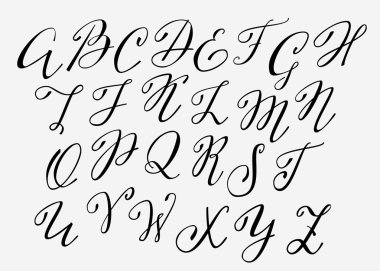 A B C D E F G H
I J K L M N
O P Q R S T
U V W X Y Z